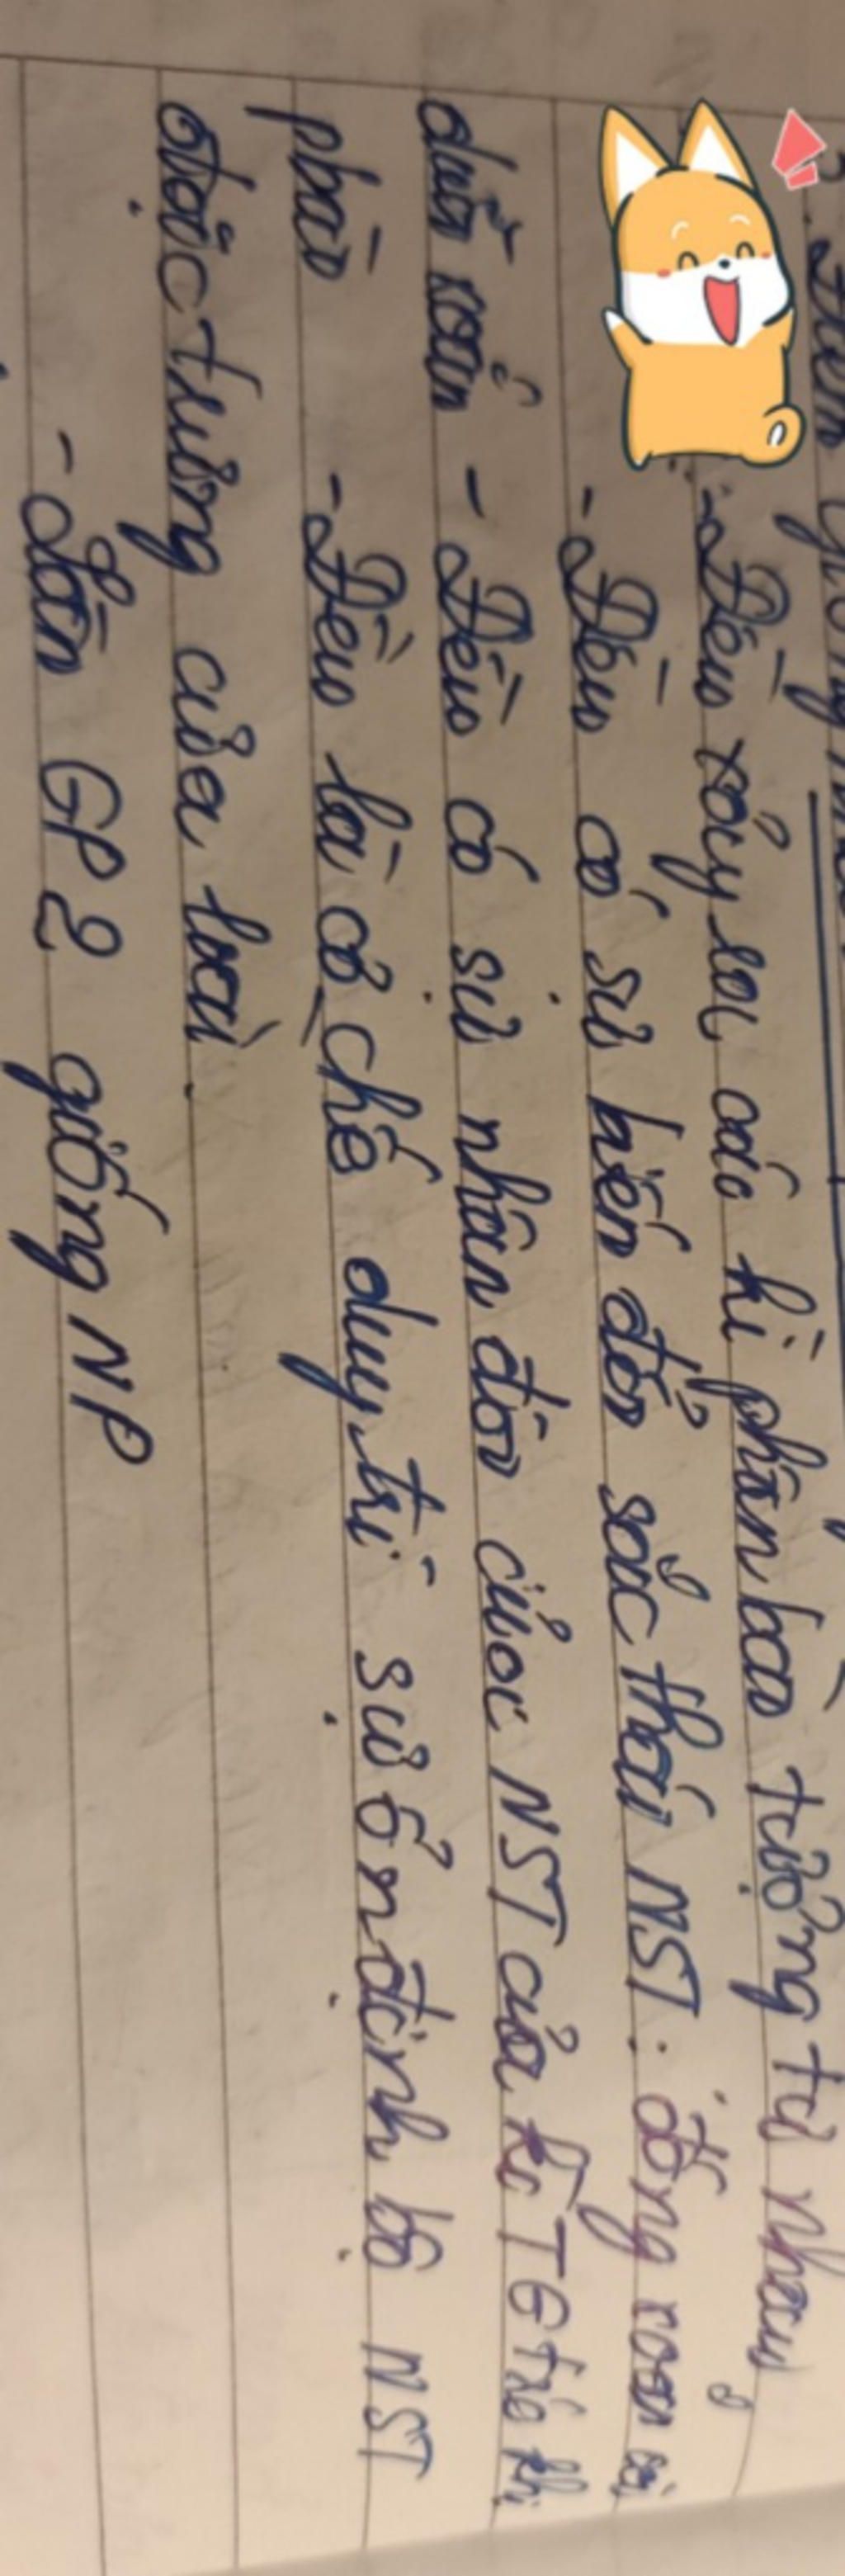 Điểm giống nhau
- Đều xảy lai các kì phân bào tương tự nhau
- Đều có sự biến đổi sắc thái NST: đóng xoắn và
duỗi xoắn - Đều có sự nhân đôi của NST của kì TG trc khi
phân bào - Đều là cơ chế duy trì sự ổn định bộ NST
đặc trưng của loài.
- Lần GP2 giống NP